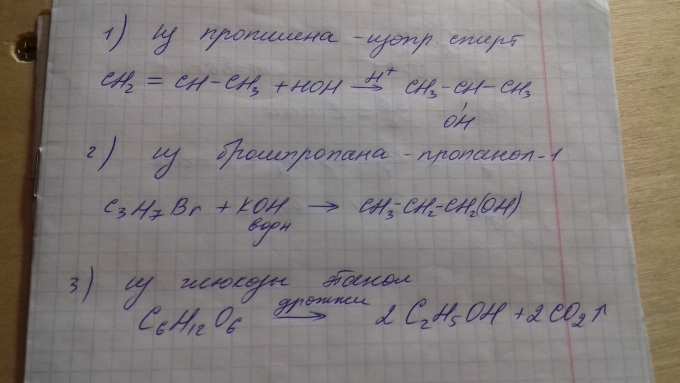 1) из пропилена - изопр. спирт
CH2 = CH-CH3 + HOH H+→ CH3-CH-CH3
OH
2) из бромпропана - пропанол-1
C3H7Br + KOH водн → CH3-CH2-CH2(OH)
3) из глюкозы этанол
C6H12O6 дрожжи→ 2C2H5OH + 2CO2↑